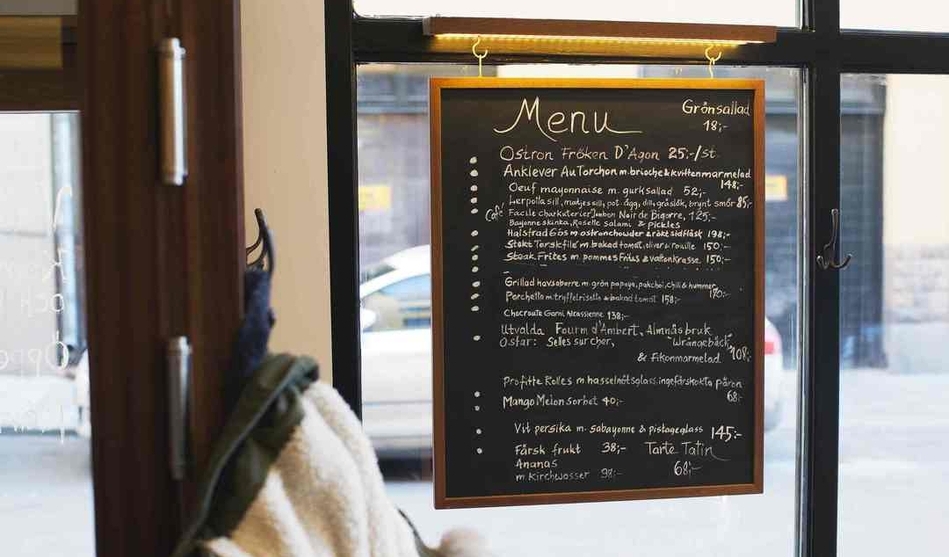 Menu
Grönsallad
18;-
Ostron Fröken D'Agon 25:-/st
Anklever Au Torchon m. brioche & kvittenmarmelad
148;-
Oeuf mayonnaise m. gurksallad 52;-
lerpolla sill, matjessill, pot. ägg, dill, gräslök, brynt smör 85;-
Café
Facile charkuterier Jambon Noir de Bigorre, 125;-
Bayonne skinka, Rosette salami & Pickles
Halstrad Gös m ostronchowder & rökt sidfläsk 198;-
Stekt Torskfilé m. bakad tomat, oliver & rouille 150;-
Steak Frites m. pommes Frites & vattenkrasse 150;-
Grillad havsaborre m. grön papaya, pakchoi, chili & hummer
170:-
Porchetta m. tryffelrisotto & bakad tomat 158;-
Choucroute Garni Alcassienne 138;-
Utvalda Fourm d'Ambert, Almnäs bruk
Ostar: Selles sur cher, "Wrångebäck"
& Fikonmarmelad. 108;-
Profitte Rolles m hasselnötsglass, ingefärskokta päron
68;-
Mango Melon Sorbet 40;-
Vit persika m. sabayonne & pistageglass 145:-
Färsk frukt 38;- Tarte Tatin
Ananas 68;-
m. Kirchwasser 98;-